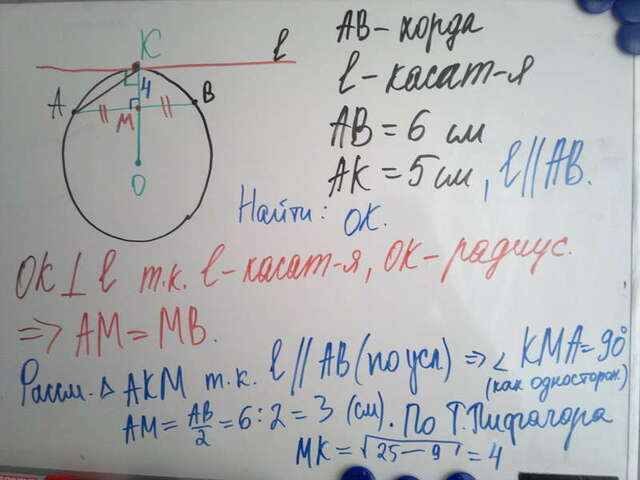 K
l
4
A
B
M
O
AB - хорда
l - касат-я
AB = 6 см
AK = 5 см, l || AB.
Найти: OK.
OK ⊥ l т.к. l - касат-я, OK - радиус.
=> AM = MB.
Рассм. △ AKM т.к. l || AB (по усл) => ∠ KMA = 90°
(как односторон)
AM = AB/2 = 6 : 2 = 3 (см). По Т. Пифагора
MK = √25 - 9 = 4